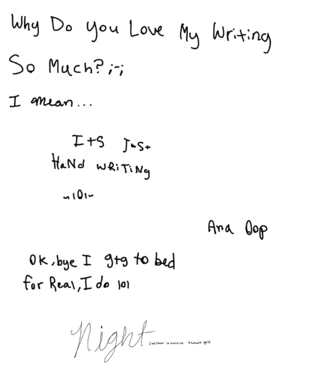 Why Do you Love My Writing
So Much? ;-;
I mean...
I+S JuS+
HaNd WRiTiNg
~lOl~
And Oop
OK, bye I gtg to bed
for Real, I do lol
Night